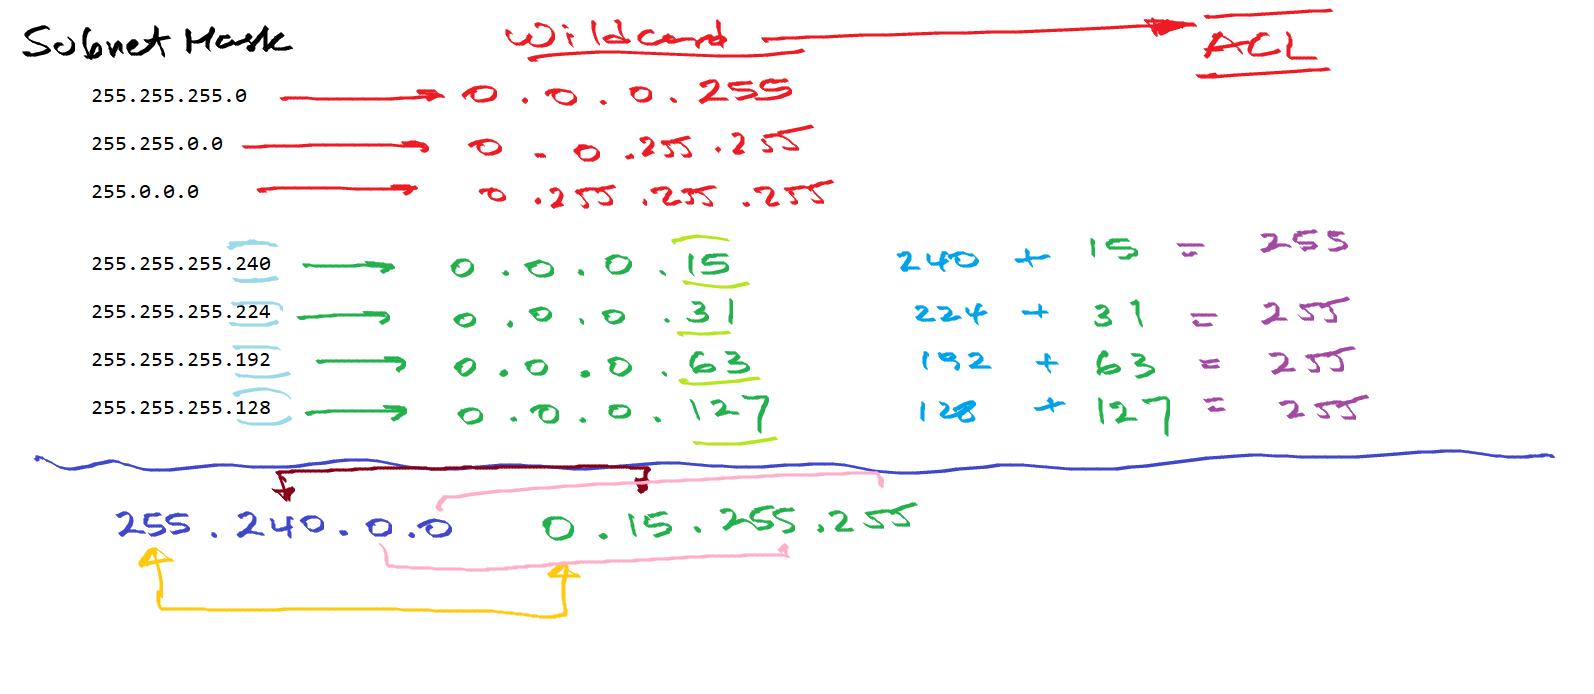 Subnet Mask Wildcard ACL
255.255.255.0 0.0.0.255
255.255.0.0 0.0.255.255
255.0.0.0 0.255.255.255
255.255.255.240 0.0.0.15 240 + 15 = 255
255.255.255.224 0.0.0.31 224 + 31 = 255
255.255.255.192 0.0.0.63 192 + 63 = 255
255.255.255.128 0.0.0.127 128 + 127 = 255
255.240.0.0 0.15.255.255